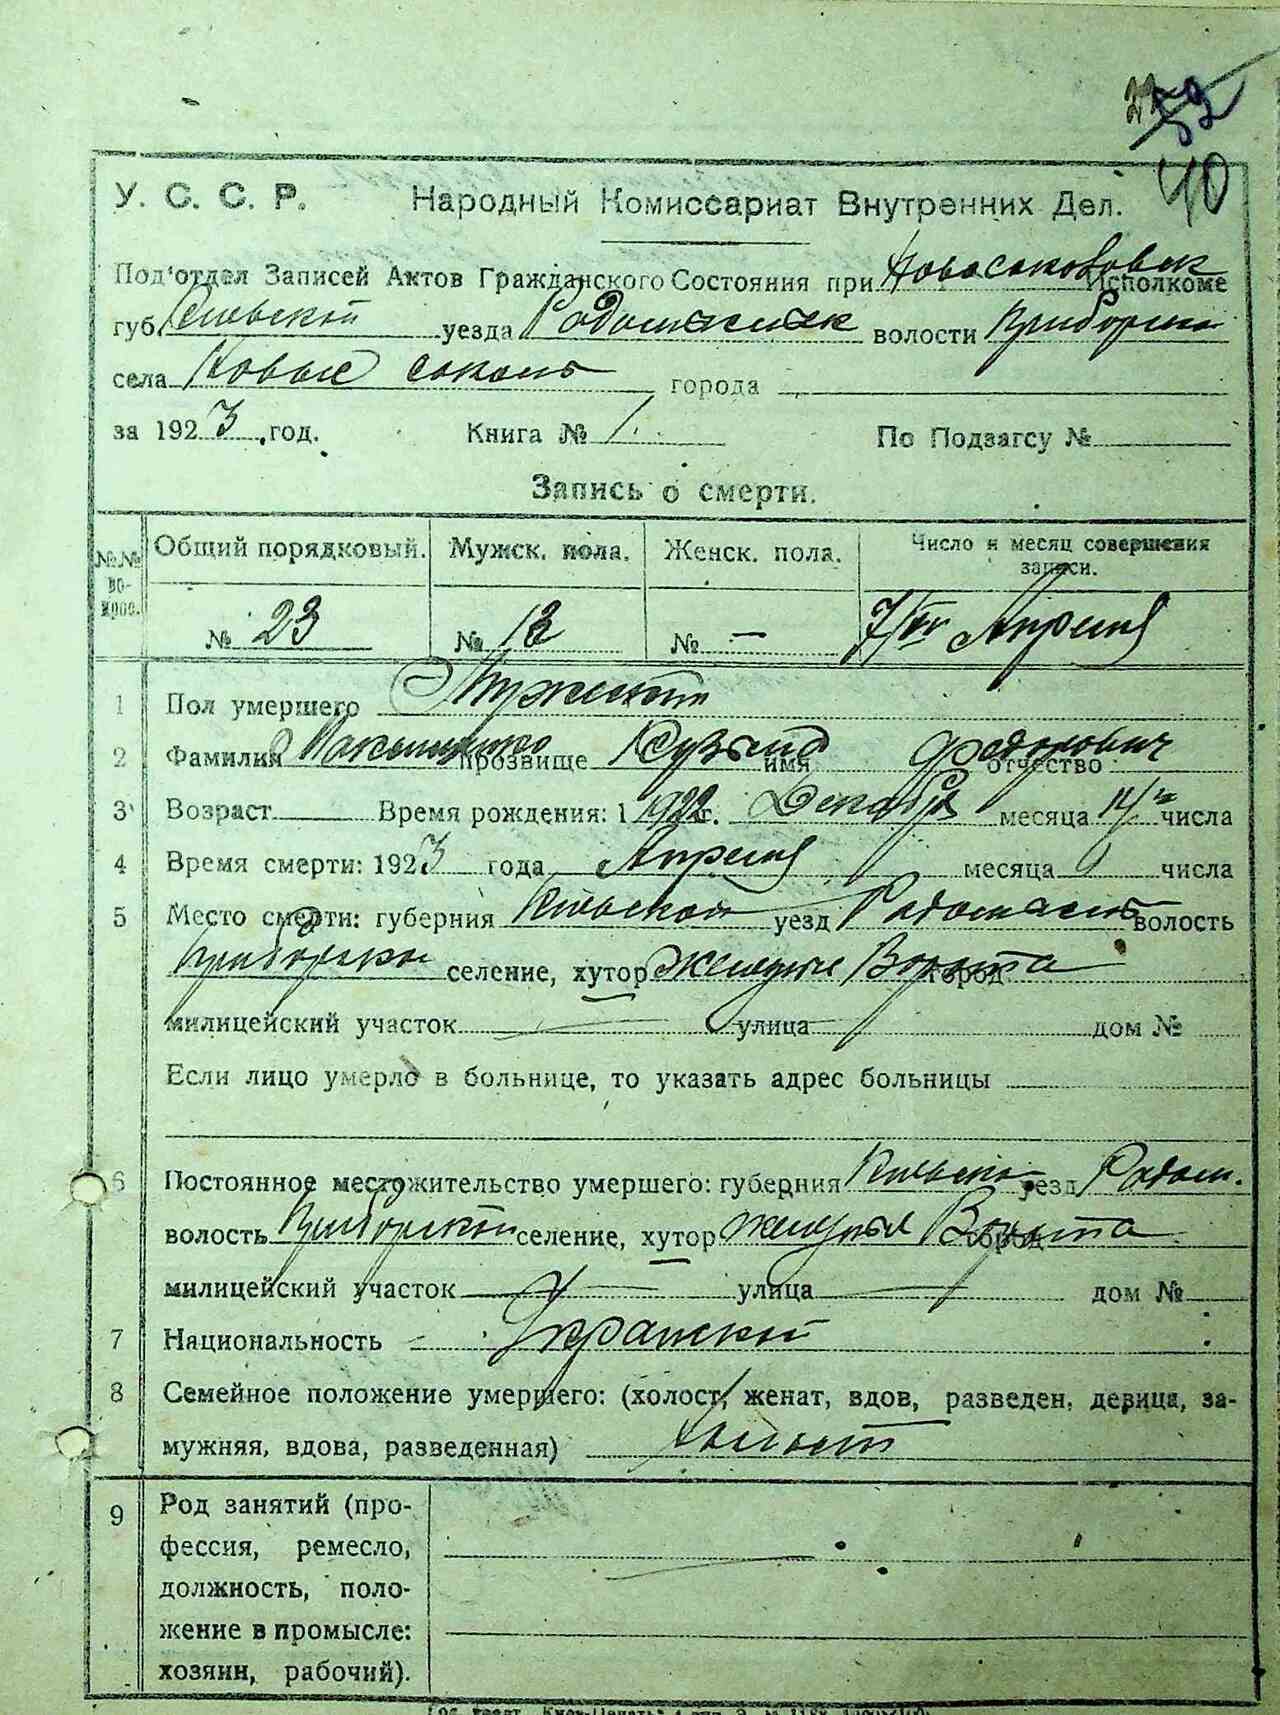 52
40
У. С. С. Р. Народный Комиссариат Внутренних Дел.
Под'отдел Записей Актов Гражданского Состояния при Новосоколовск Исполкоме
губ. Киевской уезда волости Приборской
села Новые соколы города
за 1923 год. Книга № 1. По Подзагсу №
Запись о смерти.
№№ вопрос. Общий порядковый. Мужск. пола. Женск. пола. Число и месяц совершения записи.
№ 23 № 13 № — Апреля
1 Пол умершего Мужской
2 Фамилия прозвище Кузьма имя Федорович отчество
3 Возраст Время рождения: 1 1922 г. Декабря месяца 14 числа
4 Время смерти: 1923 года Апреля месяца числа
5 Место смерти: губерния Киевской уезд волость
Приборской селение, хутор Ворота город
милицейский участок улица дом №
Если лицо умерло в больнице, то указать адрес больницы
6 Постоянное местожительство умершего: губерния Киевской уезд Радом.
волость Приборской селение, хутор Ворота город
милицейский участок — улица — дом №
7 Национальность
8 Семейное положение умершего: (холост, женат, вдов, разведен, девица, за-
мужняя, вдова, разведенная) холост
9 Род занятий (про-
фессия, ремесло,
должность, поло-
жение в промысле:
хозяин, рабочий).